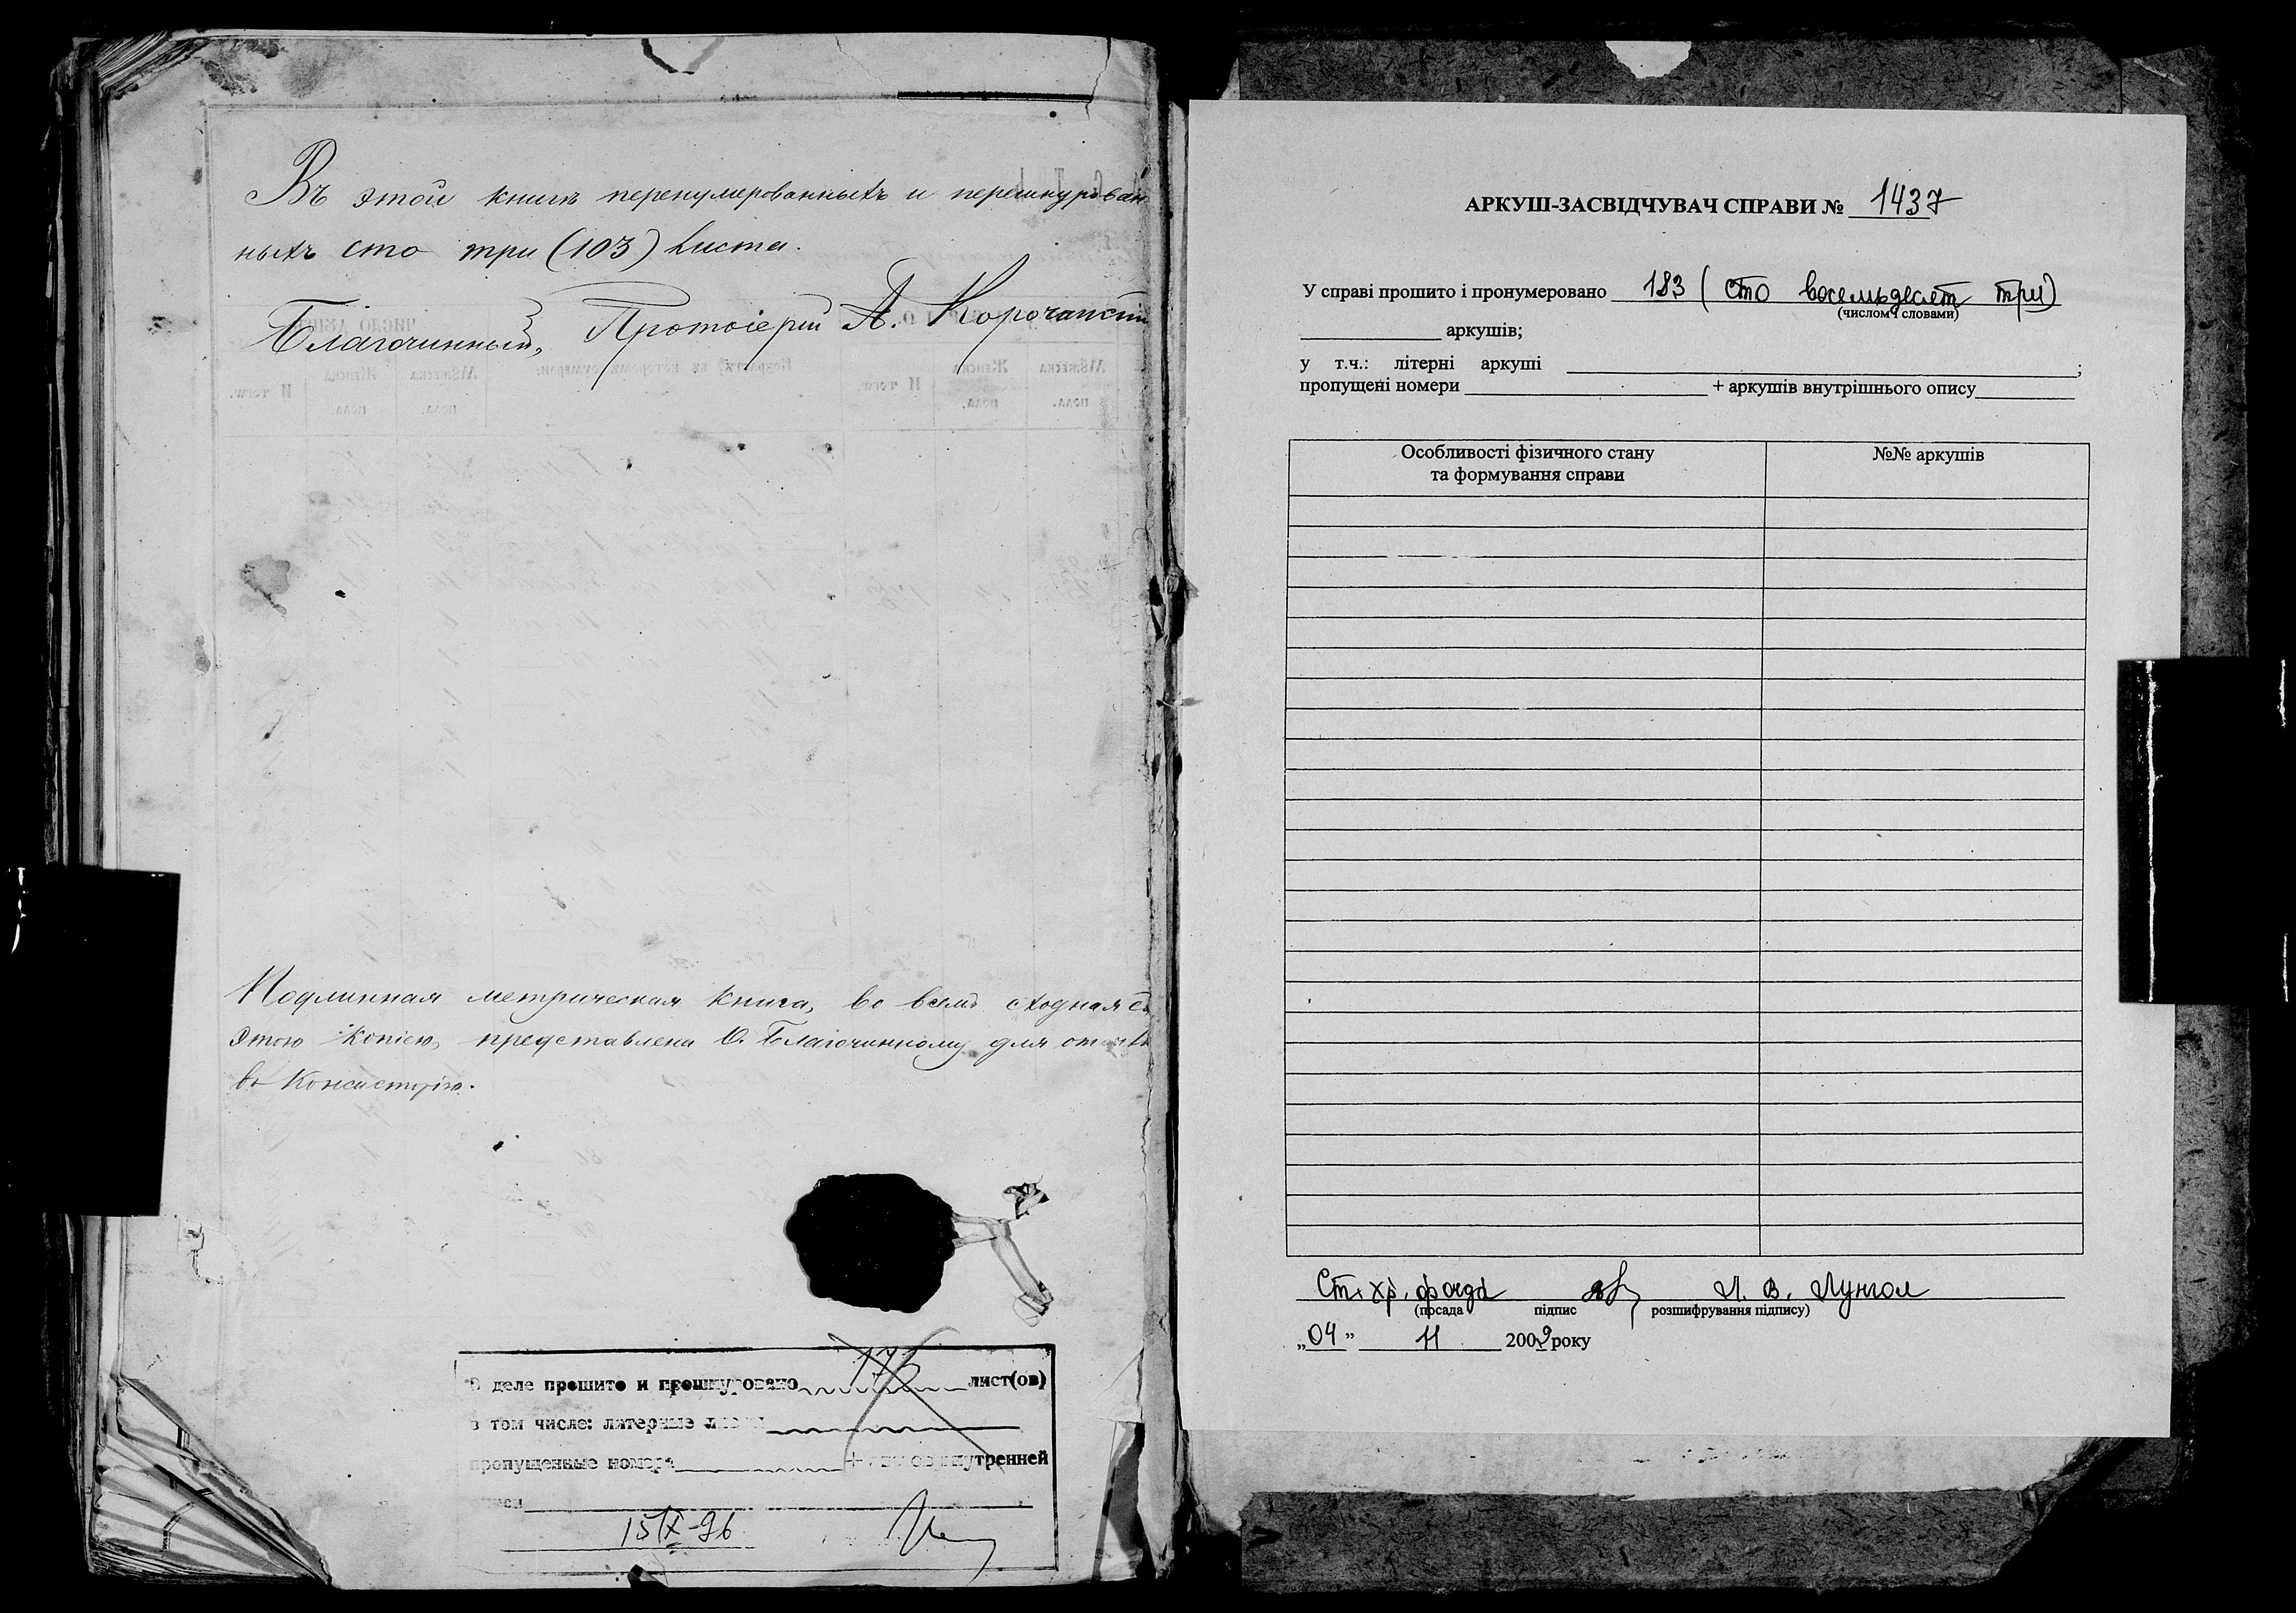 Въ этой книгѣ перенумерованныхъ и перешнурован
ныхъ сто три (103) листа.
Благочинный, Протоіерей А. Корочанскій
Подлинная метрическая книга, во всемъ сходная съ
этою копіею, представлена О. Благочинному для
въ Консисторію.
В деле прошито и прошнуровано 176 лист(ов)
в том числе: литерные листы
пропущенные номера + листов внутренней
описи
15/IX-96
АРКУШ-ЗАСВІДЧУВАЧ СПРАВИ № 1437
У справі прошито і пронумеровано 183 (сто восемьдесят три)
(числом і словами)
аркушів;
у т.ч.: літерні аркуші ;
пропущені номери + аркушів внутрішнього опису
Особливості фізичного стану
та формування справи
№№ аркушів
Ст. хр. фонда Л. В. Лунгол
(посада підпис розшифрування підпису)
„04” 11 2009 року